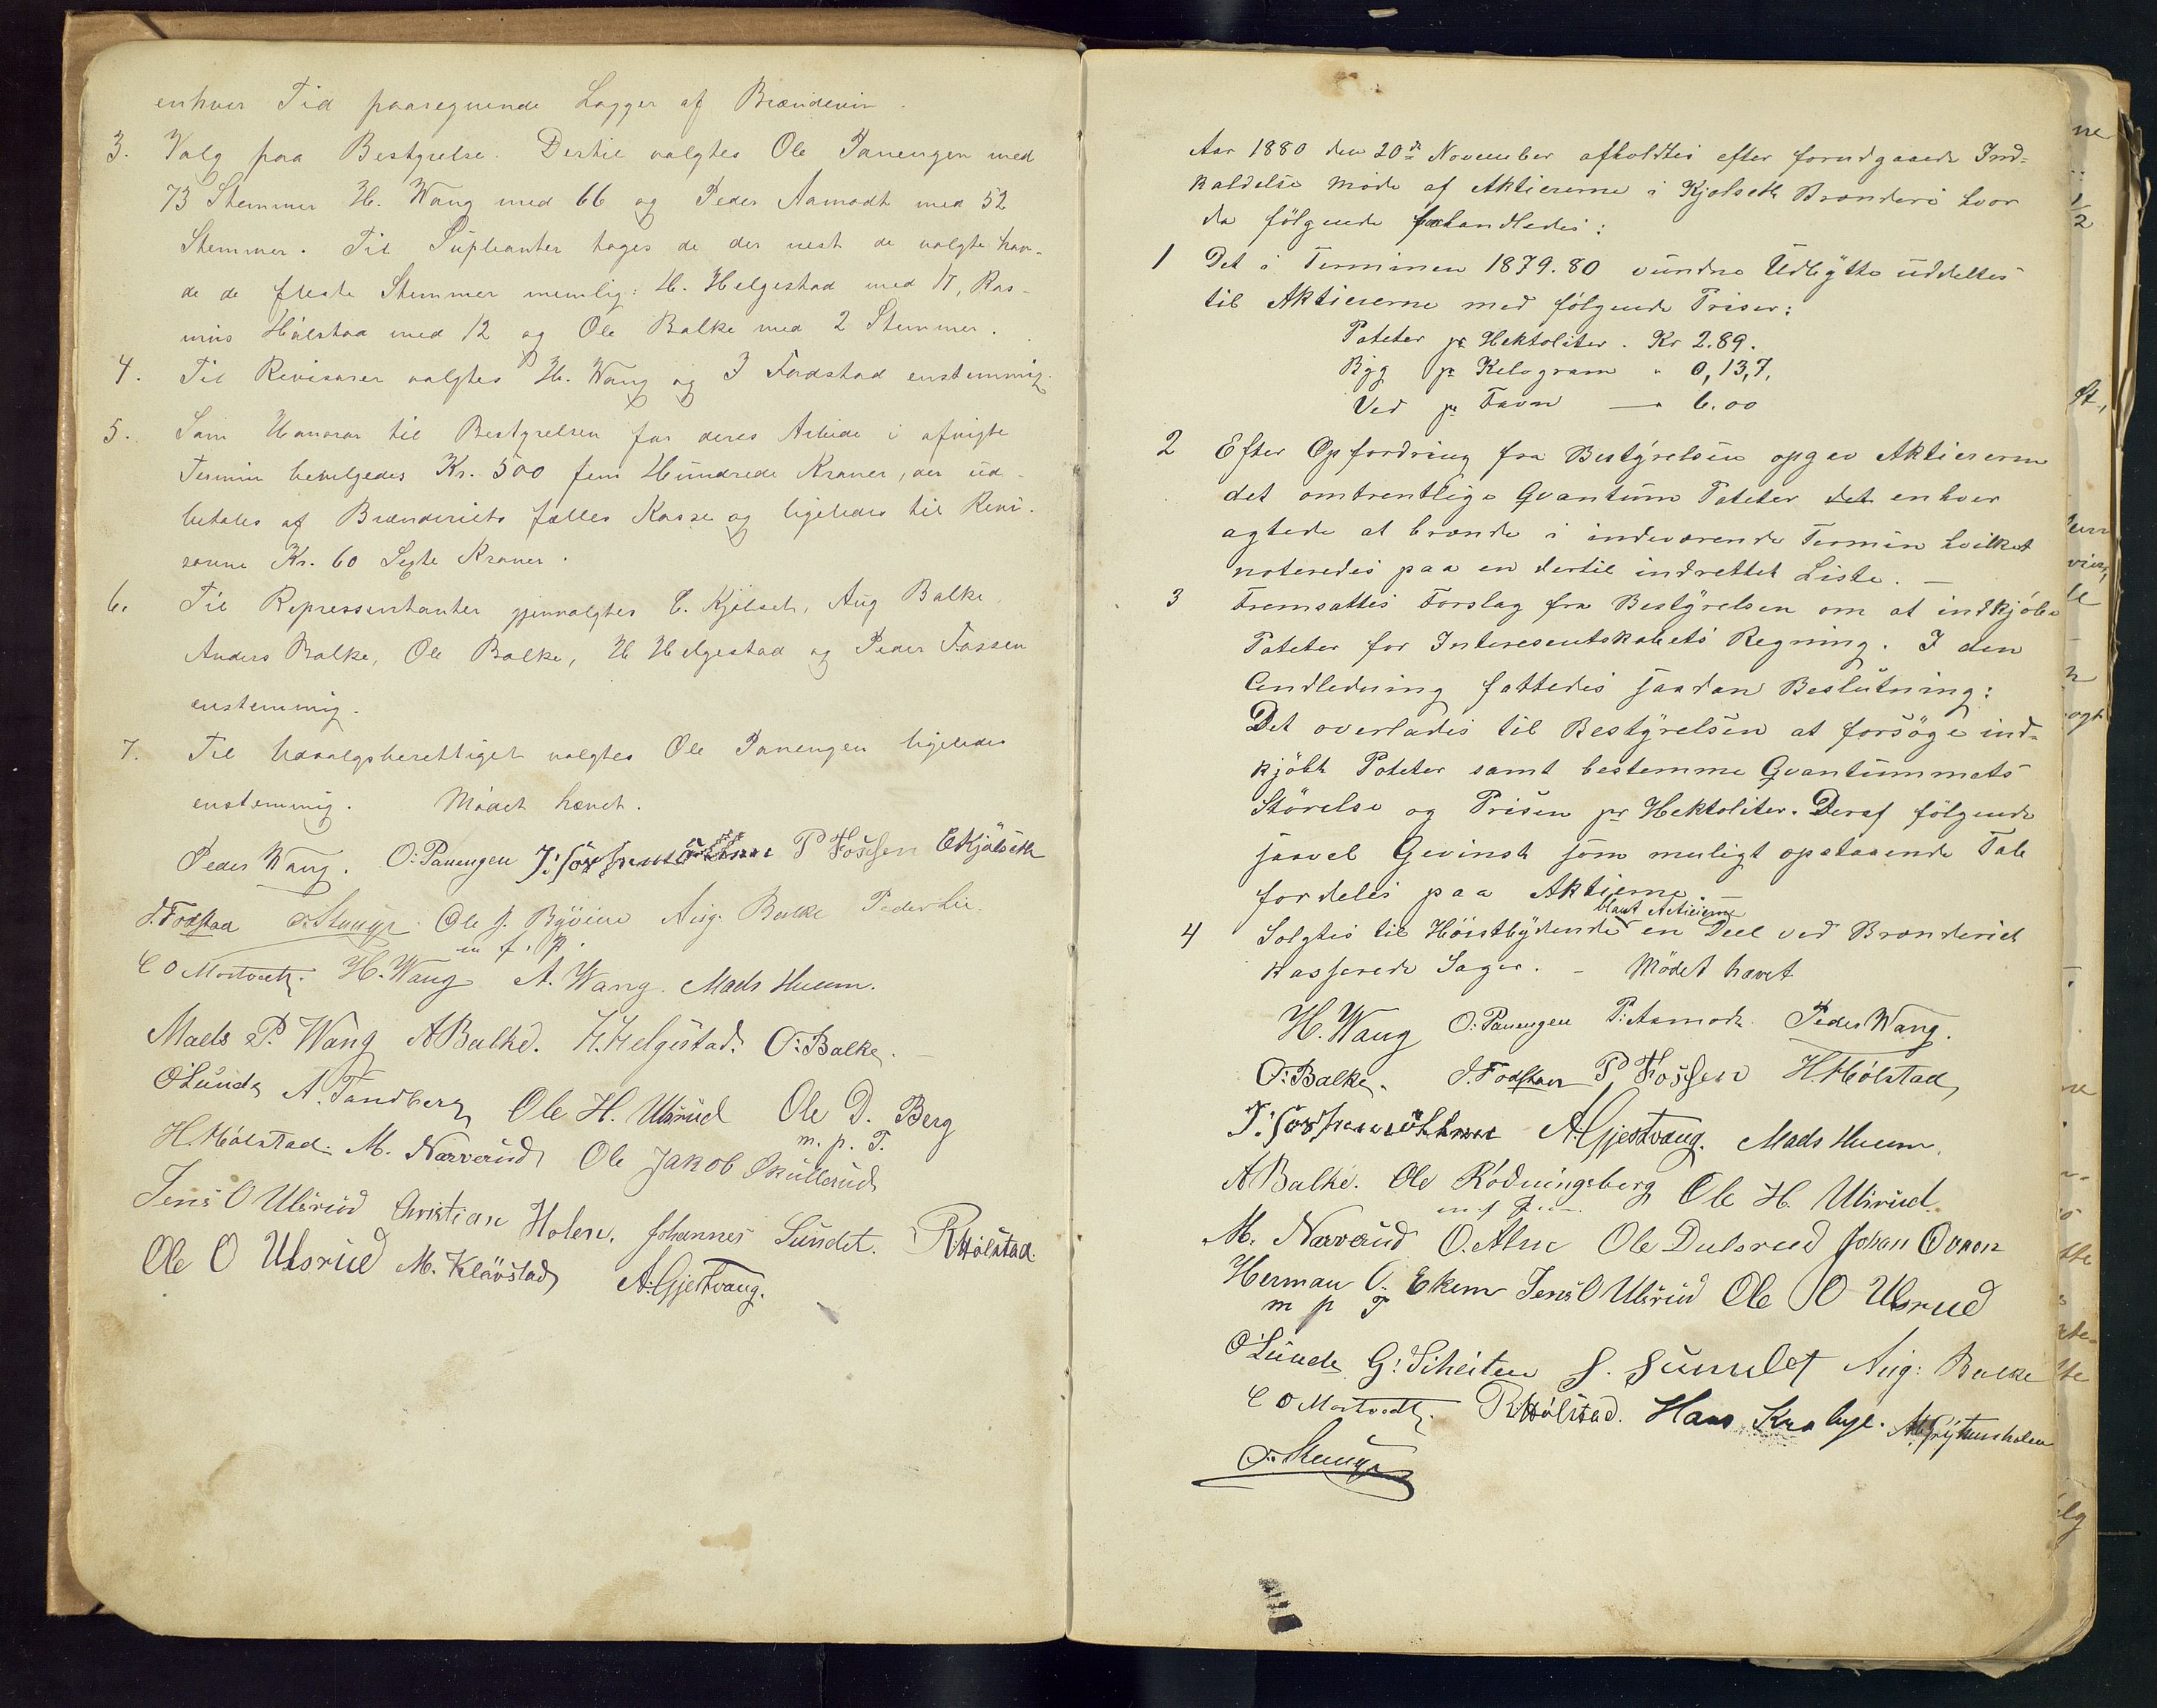 enhver Tid paaregnende Lagger af Brændevin.
3. Valg paa Bestyrelse. Dertil valgtes Ole Panengen med
73 Stemmer H. Wang med 66 og Peder Aamodt med 52
Stemmer. Til Supleanter toges de der nest de valgte hav-
de de fleste Stemmer nemlig: H. Helgestad med 17, Ras-
mus Hólstad med 12 og Ole Balke med 2 Stemmer.
4. Til Revisorer valgtes H. Wang og J Fodstad enstemmig.
5. Som Honorar til Bestyrelsen for deres Arbeide i afvigte
Termin bevilgedes Kr. 500 fem Hundrede Kroner, der ud-
betales af Brænderiets fælles Kasse og ligeledes til Revi-
sorene Kr. 60 Sexte Kroner.
6. Til Repressentanter gjenvalgtes E. Kjölseth, Aug Balke
Anders Balke, Ole Balke, H Helgestad og Peder Fossen
enstemmig.
7. Til Udvalgsberettiget valgtes Ole Panengen ligeledes
enstemmig. Mödet hævet.
Peder Wang. O: Panengen P Fossen E Kjölseth
J. Fodstad Ole J. Byövien Aug: Balke Peder Lie.
m f. P.
C O Mortvedt. H. Wang A. Wang. Mads Huem.
Mads P. Wang A Balke. H. Helgestad. O: Balke.
O Lunde A. Sandberg Ole H. Ulsrud Ole D. Berg
m. p. P.
H. Hólstad. M. Narverud Ole Jakob Skullerud
Jens O Ulsrud Christian Holen. Johannes Sundet. R. Hólstad.
Ole O Ulsrud M. Klävstad A. Gjestvang.
Aar 1880 den 20de November afholdtes efter forudgaaede Ind-
kaldelse Möde af Aktiererne i Kjölseth Brænderi hvor
da fölgende forhandledes:
1 Det i Terminen 1879.80 vundne Udbytte uddeltes
til Aktiererne med fölgende Priser:
Poteter pr Hektoliter. Kr 2.89.
Byg pr Kelogram " 0,13,7,
Ved pr Favn — " 6.00
2 Efter Opfordring fra Bestyrelsen opgav Aktiererne
det omtrentlige Qvantum Poteter det enhver
agtede at brænde i indeværende Termin hvilket
noteredes paa en dertil indrettet Liste. —
3 Fremsattes Forslag fra Bestyrelsen om at indkjöbe
Poteter for Interesentskabets Regning. I den
Andledning fattedes saadan Beslutning:
Det overlades til Bestyrelsen at forsöge ind-
kjöbt Poteter samt bestemme Qvantummets
Störelse og Prisen pr Hektoliter. Deraf fölgende
saavel Gevinst som muligt opstaaende Tab
fordeles paa Aktierne. —
blant Actieierne
4 Solgtes til Höistbydende en Deel ved Brænderiet
kasserede Sager. — Mödet hævet
H. Wang O: Panengen P: Aamodt Peder Wang.
O: Balke. J. Fodstad P Fossen H. Hólstad
A. Gjestvang. Mads Huem.
A Balke. Ole Rödningsberg Ole H. Ulsrud
M. Narverud O. Alm Ole Dulsrud Johan Ovren
Herman O. Ekern Jens O Ulsrud Ole O Ulsrud
m p P
O Lunde J. Sundet Aug: Balke
C O Mortvedt. R. Hólstad. Hans Krabye.